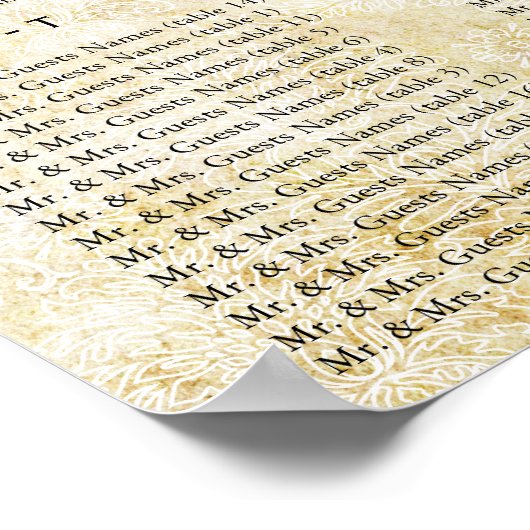 - T
Guests Names (table 14)
Guests Names (table 1)
Mrs. Guests Names (table 11)
& Mrs. Guests Names (table 5)
Mr. & Mrs. Guests Names (table 6)
Mr. & Mrs. Guests Names (table 4)
Mr. & Mrs. Guests Names (table 8)
Mr. & Mrs. Guests Names (table 3)
Mr. & Mrs. Guests Names (table 12)
Mr. & Mrs. Guests Names (table
Mr. & Mrs. Guests Names (table
Mr. & Mrs. Guests Names
Mr. & Mrs. Guests Names
Mr. & Mrs. Guests
Mr. & Mrs. Guests